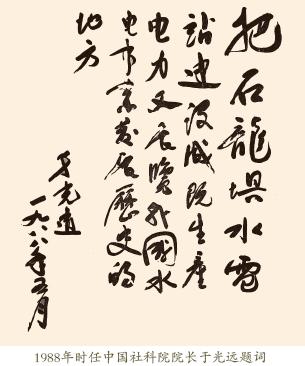 把石龍垻水電
站建设成既生產
电力又展覽我國水
电事業发展歷史的
地方
于光遠
一九八八年五月
1988年时任中国社科院院长于光远题词